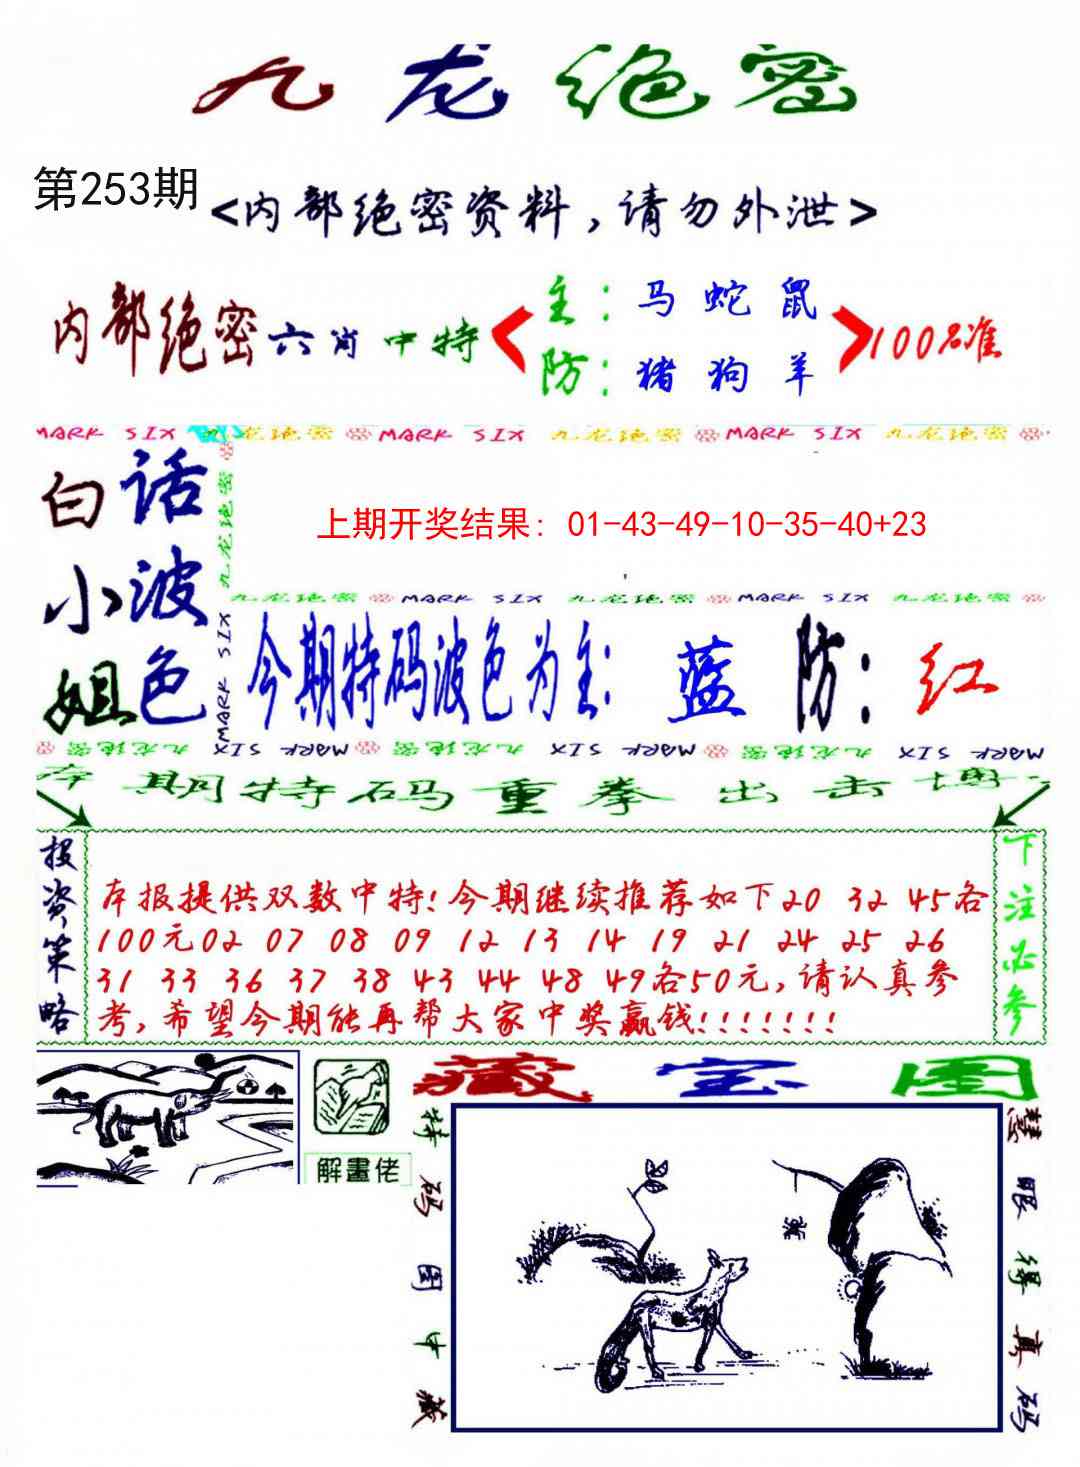 九龙绝密
第253期
<内部绝密资料，请勿外泄>
内部绝密六肖中特
主：马 蛇 鼠
防：猪 狗 羊
100%准
MARK SIX 九龙绝密 MARK SIX 九龙绝密 MARK SIX 九龙绝密
白话
小波
姐色
九龙绝密
MARK SIX
上期开奖结果：01-43-49-10-35-40+23
九龙绝密 MARK SIX 九龙绝密 MARK SIX 九龙绝密
今期特码波色为主：蓝 防：红
九龙绝密 MARK SIX 九龙绝密 MARK SIX 九龙绝密 MARK SIX
本期特码重拳出击博
投资策略
本报提供双数中特！今期继续推荐如下20 32 45各
100元02 07 08 09 12 13 14 19 21 24 25 26
31 33 36 37 38 43 44 48 49各50元，请认真参
考，希望今期能再帮大家中奖赢钱！！！！！！！
下注必参
解畫佬
藏宝图
特码图中藏
慧眼得真码